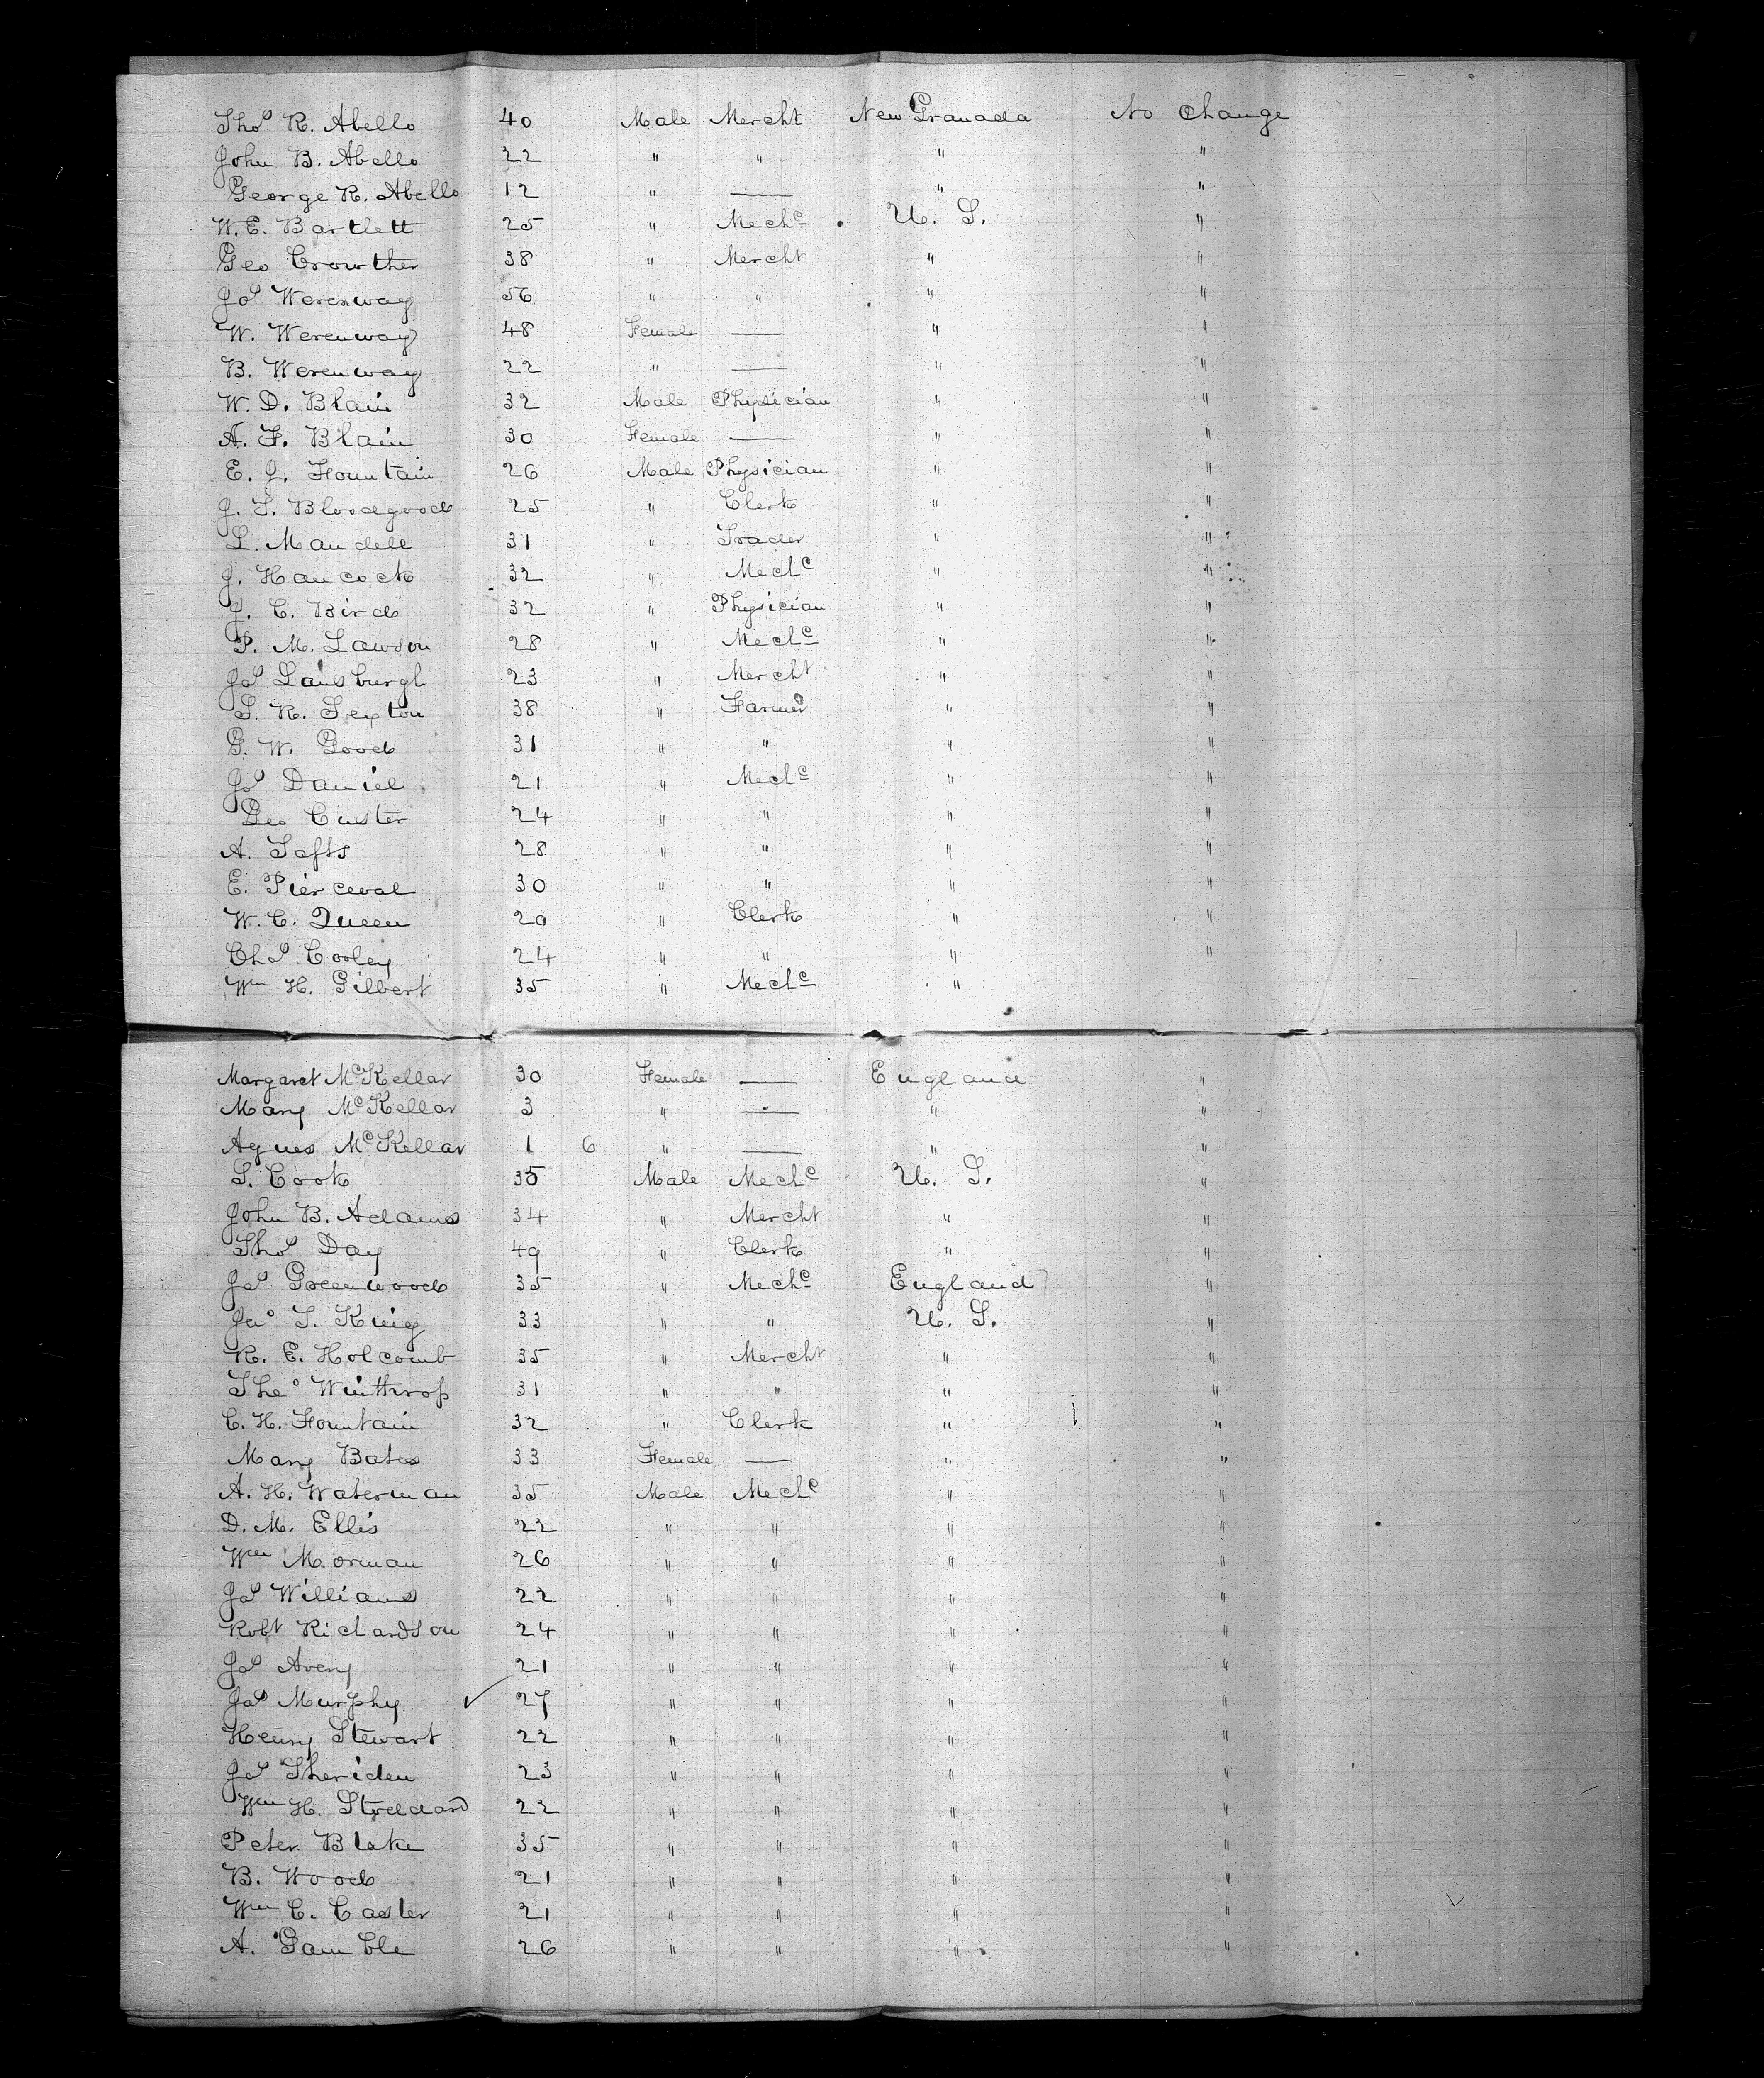 Thos R. Abello 40 Male Mercht New Granada No Change
John B. Abello 22 " " " "
George R. Abello 12 " — " "
W. E. Bartlett 25 " Mechc U. S. "
Geo Crowther 38 " Mercht " "
Jas Werenway 56 " " " "
W. Werenway 48 Female — " "
B. Werenway 22 " — " "
W. D. Blain 32 Male Physician " "
A. F. Blain 30 Female — " "
E. J. Fountain 26 Male Physician " "
J. T. Bloodgood 25 " Clerk " "
L. Mandell 31 " Trader " "
J. Hancock 32 " Mechc " "
J. C. Bird 32 " Physician " "
P. M. Lawson 28 " Mechc " "
Jas Lansburgh 23 " Mercht " "
S. R. Sexton 38 " Farmer " "
G. W. Good 31 " " " "
Jas Daniel 21 " Mechc " "
Geo Custer 24 " " " "
A. Tafts 28 " " " "
E. Pierceval 30 " " " "
W. C. Queen 20 " Clerk " "
Chas Cooley 24 " " " "
Wm H. Gilbert 35 " Mechc "
Margaret McKellar 30 Female — England "
Mary McKellar 3 " — " "
Agnes McKellar 1 6 " — " "
S. Cook 35 Male Mechc U. S. "
John B. Adams 34 " Mercht " "
Thos Day 49 " Clerk " "
Jas Greenwood 35 " Mechc England "
Jno S. King 33 " " U. S. "
R. E. Holcomb 35 " Mercht " "
Theo Winthrop 31 " " " "
C. H. Fountain 32 " Clerk " "
Mary Bates 33 Female — " "
A. H. Waterman 35 Male Mechc " "
D. M. Ellis 22 " " " "
Wm Morman 26 " " " "
Jas Williams 22 " " " "
Robt Richardson 24 " " " "
Jas Avery 21 " " " "
Jas Murphy 27 " " " "
Henry Stewart 22 " " " "
Jas Sheriden 23 " " " "
Wm H. Stoddard 22 " " " "
Peter Blake 35 " " " "
B. Wood 21 " " " "
Wm C. Casler 21 " " " "
A. Gamble 26 " " " "